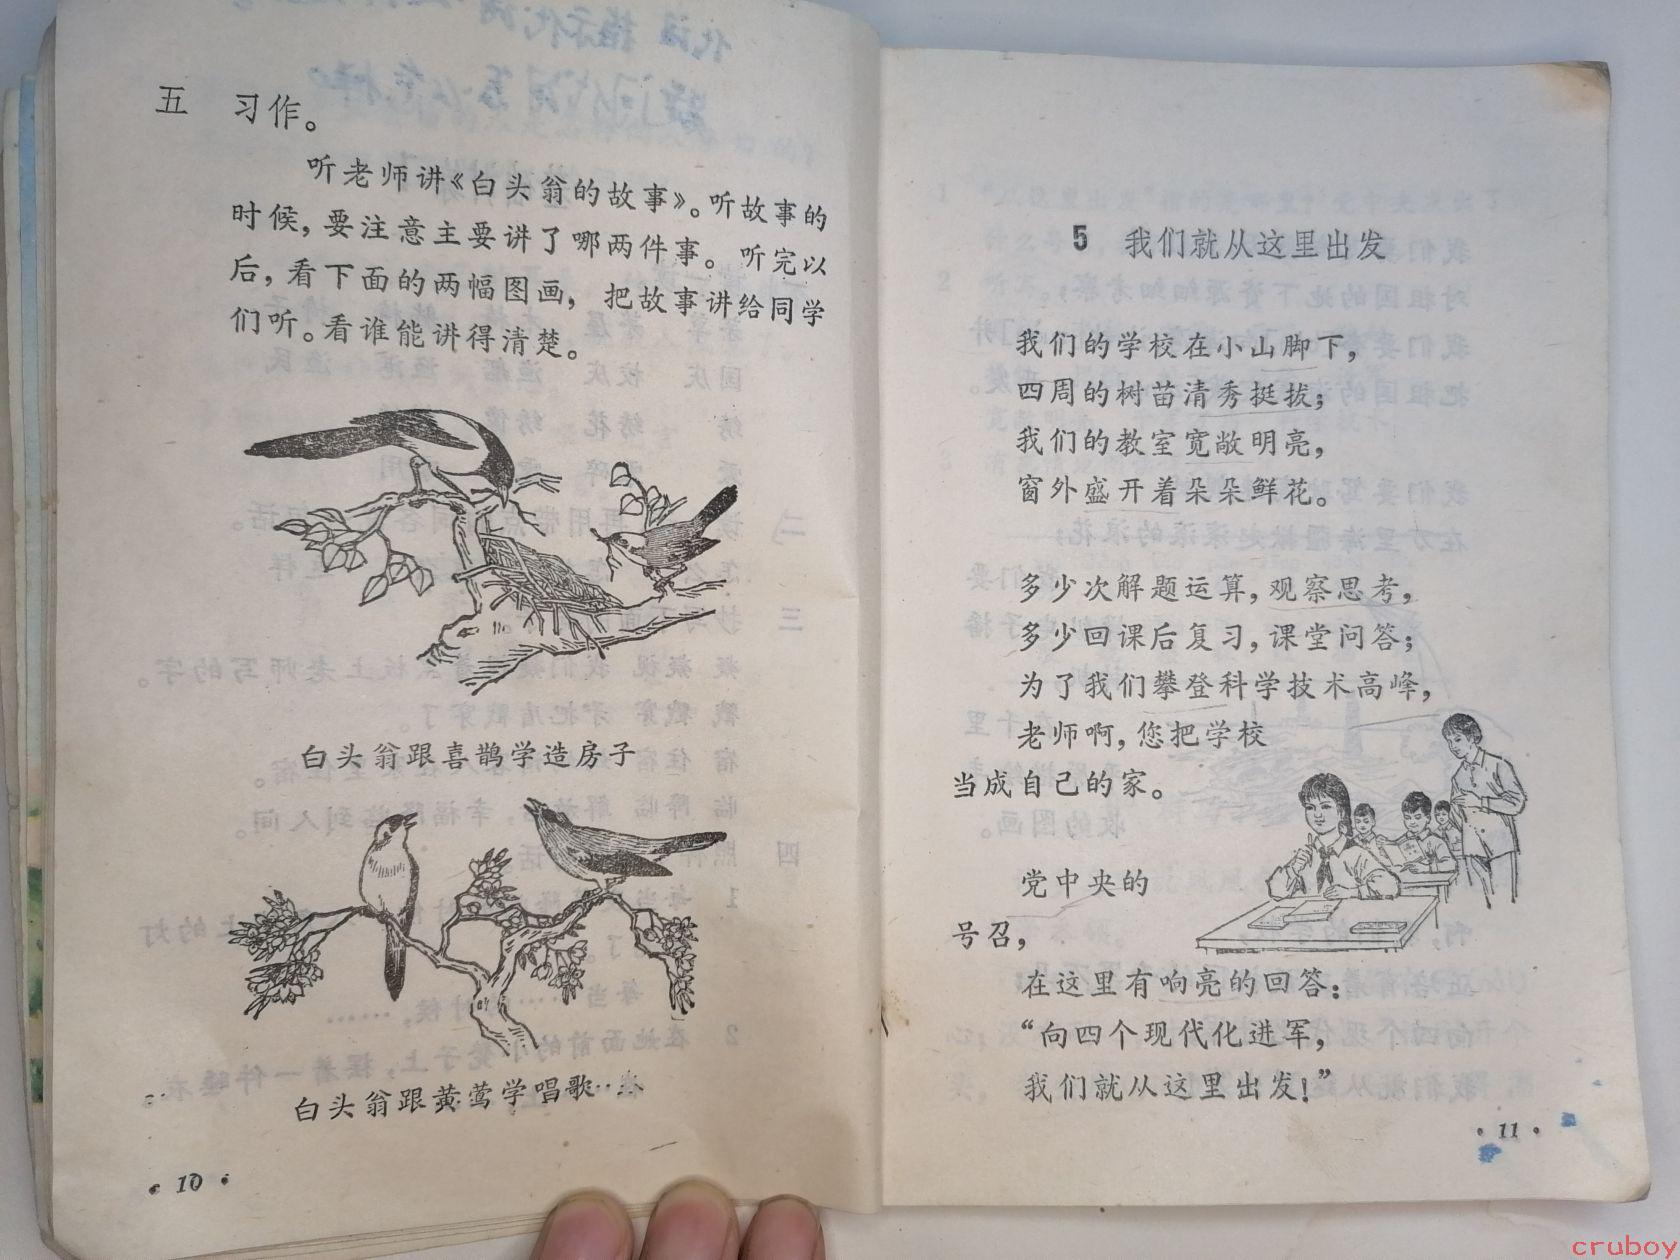 五 习作。
听老师讲《白头翁的故事》。听故事的
时候，要注意主要讲了哪两件事。听完以
后，看下面的两幅图画，把故事讲给同学
们听。看谁能讲得清楚。
白头翁跟喜鹊学造房子
白头翁跟黄莺学唱歌
·10·
5 我们就从这里出发
我们的学校在小山脚下，
四周的树苗清秀挺拔；
我们的教室宽敞明亮，
窗外盛开着朵朵鲜花。
多少次解题运算，观察思考，
多少回课后复习，课堂问答；
为了我们攀登科学技术高峰，
老师啊，您把学校
当成自己的家。
党中央的
号召，
在这里有响亮的回答：
“向四个现代化进军，
我们就从这里出发！”
·11·
cruboy